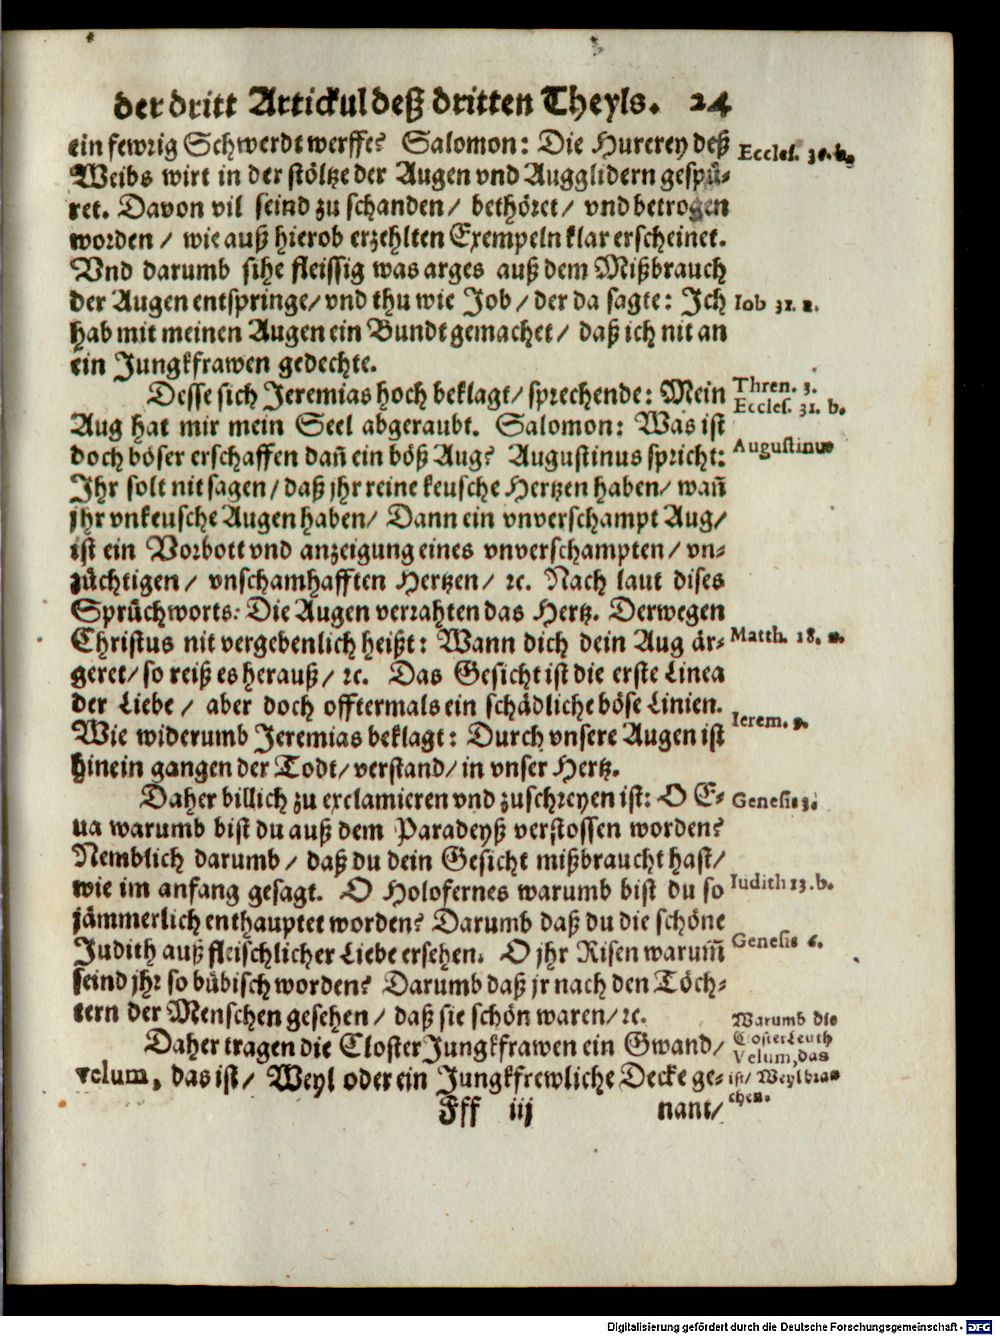 der dritt Artickul deß dritten Theyls. 24
ein fewrig Schwerdt werffe? Salomon: Die Hurerey deß
Eccles.
Weibs wirt in der stöltze der Augen vnd Augglidern gespü-
ret. Davon vil seind zu schanden/ bethöret/ vnd betrogen
worden/ wie auß hierob erzehlten Exempeln klar erscheinet.
Vnd darumb sihe fleissig was arges auß dem Mißbrauch
der Augen entspringe/ vnd thu wie Job/ der da sagte: Jch
Iob 31. a.
hab mit meinen Augen ein Bundt gemachet/ daß ich nit an
ein Jungkfrawen gedechte.
Desse sich Jeremias hoch beklagt/ sprechende: Mein
Thren. 3.
Eccles. 31. b.
Aug hat mir mein Seel abgeraubt. Salomon: Was ist
doch böser erschaffen dañ ein böß Aug? Augustinus spricht:
Augustinus
Jhr solt nit sagen/ daß jhr reine keusche Hertzen haben/ wañ
jhr vnkeusche Augen haben/ Dann ein vnverschampt Aug/
ist ein Vorbott vnd anzeigung eines vnverschampten/ vn-
züchtigen/ vnschamhafften Hertzen/ ꝛc. Nach laut dises
Sprüchworts: Die Augen verrahten das Hertz. Derwegen
Christus nit vergebenlich heißt: Wann dich dein Aug är-
Matth. 18. a.
geret/ so reiß es herauß/ ꝛc. Das Gesicht ist die erste Linea
der Liebe/ aber doch offtermals ein schädliche böse Linien.
Ierem. 9.
Wie widerumb Jeremias beklagt: Durch vnsere Augen ist
hinein gangen der Todt/ verstand/ in vnser Hertz.
Daher billich zu exclamieren vnd zuschreyen ist: O E-
Genesis 3.
ua warumb bist du auß dem Paradeyß verstossen worden?
Nemblich darumb/ daß du dein Gesicht mißbraucht hast/
wie im anfang gesagt. O Holofernes warumb bist du so
Iudith 13. b.
jämmerlich enthauptet worden? Darumb daß du die schöne
Judith auß fleischlicher Liebe ersehen. O jhr Risen warum̃
Genesis 6.
seind jhr so bübisch worden? Darumb daß jr nach den Töch-
tern der Menschen gesehen/ daß sie schön waren/ ꝛc.
Daher tragen die Closter Jungkfrawen ein Gwand/
velum, das ist/ Weyl oder ein Jungkfrewliche Decke ge-
Warumb die
Closterleuth
Velum, das
ist/ Weyl brau
chen.
Fff iij nant/
Digitalisierung gefördert durch die Deutsche Forschungsgemeinschaft - DFG